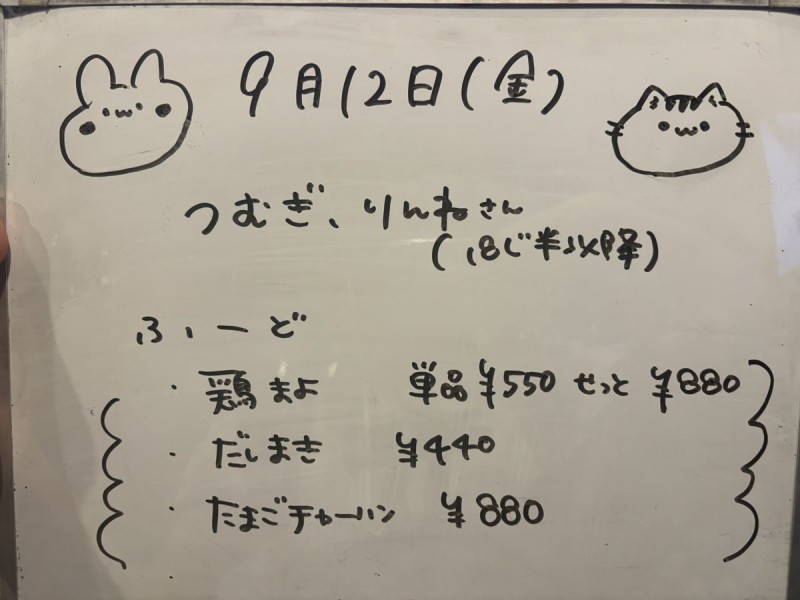 9月12日(金)
つむぎ、りんねさん
(18じ半以降)
ふぃーど
・鶏まよ 単品¥550 せっと ¥880
・だしまき ¥440
・たまごチャーハン ¥880